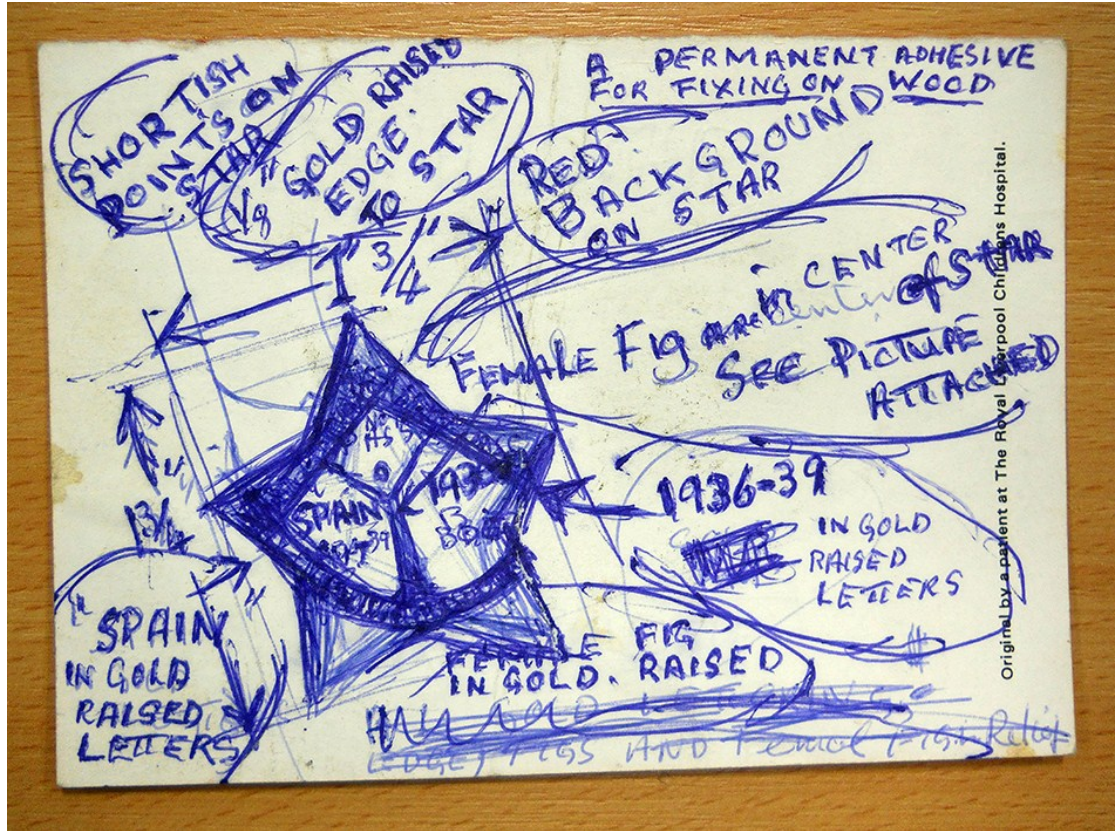 SHORTISH
POINTS ON
STAR
1/8" GOLD RAISED
EDGE.
TO STAR
A PERMANENT ADHESIVE
FOR FIXING ON WOOD
RED
BACKGROUND
ON STAR
3/4"
FEMALE Fig in CENTER of STAR
SEE PICTURE
ATTACHED
SPAIN
193
1936-39
IN GOLD
RAISED
LETTERS
1 3/4
"SPAIN"
IN GOLD
RAISED
LETTERS
FEMALE FIG
IN GOLD. RAISED
AND
Original by a patient at The Royal Liverpool Childrens Hospital.